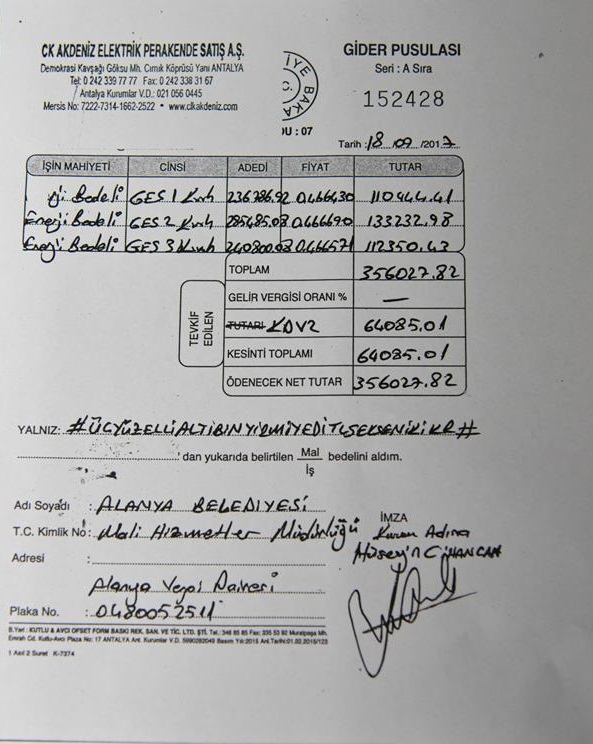 CK AKDENİZ ELEKTRİK PERAKENDE SATIŞ A.Ş.
Demokrasi Kavşağı Göksu Mh. Cırnık Köprüsü Yanı ANTALYA
Tel: 0 242 339 77 77 Fax: 0 242 338 31 67
Antalya Kurumlar V.D.: 021 056 0445
Mersis No: 7222-7314-1662-2522 • www.clkakdeniz.com
İYE BAKA
C.
DU : 07
GİDER PUSULASI
Seri : A Sıra
152428
Tarih : 18 /09 /2017
İŞİN MAHİYETİ CİNSİ ADEDİ FİYAT TUTAR
ji Bedeli GES 1 Kwh 236786.92 0.466430 110444.41
Enerji Bedeli GES 2 Kwh 285485.08 0.466690 133232.98
Enerji Bedeli GES 3 Kwh 240800.08 0.466571 112350.43
TOPLAM 356027.82
TEVKİF EDİLEN
GELİR VERGİSİ ORANI % —
TUTARI KDV2 64085.01
KESİNTİ TOPLAMI 64085.01
ÖDENECEK NET TUTAR 356027.82
YALNIZ: #ÜÇYÜZELLİALTIBİNYİRMİYEDİTLSEKSENİKİKR#
'dan yukarıda belirtilen Mal İş bedelini aldım.
Adı Soyadı : ALANYA BELEDİYESİ
T.C. Kimlik No : Mali Hizmetler Müdürlüğü
İMZA
Kurum Adına
Hüseyin CİHANCAN
Adresi :
Alanya Vergi Dairesi
Plaka No. : 0480052511
B.Yeri : KUTLU & AVCI OFSET FORM BASKI REK. SAN. VE TİC. LTD. ŞTİ. Tel.: 346 85 85 Fax: 335 53 92 Muratpaşa Mh.
Emrah Cd. Kutlu-Avcı Plaza No: 17 ANTALYA Ant. Kurumlar V.D. 5990292049 Basım Yılı:2015 Anl.Tarihi:01.02.2015/123
1 Asıl 2 Suret K-7374